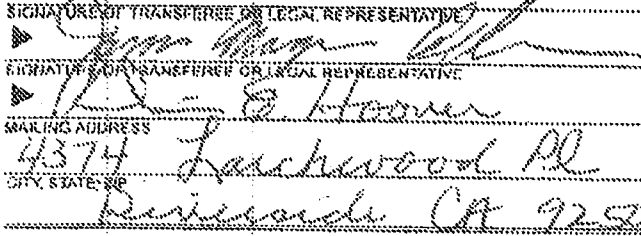 SIGNATURE OF TRANSFEREE OR LEGAL REPRESENTATIVE
SIGNATURE OR TRANSFEREE OR LEGAL REPRESENTATIVE
E. Hoover
MAILING ADDRESS
4374 Larchwood Pl
CITY, STATE, ZIP
Riverside CA 925